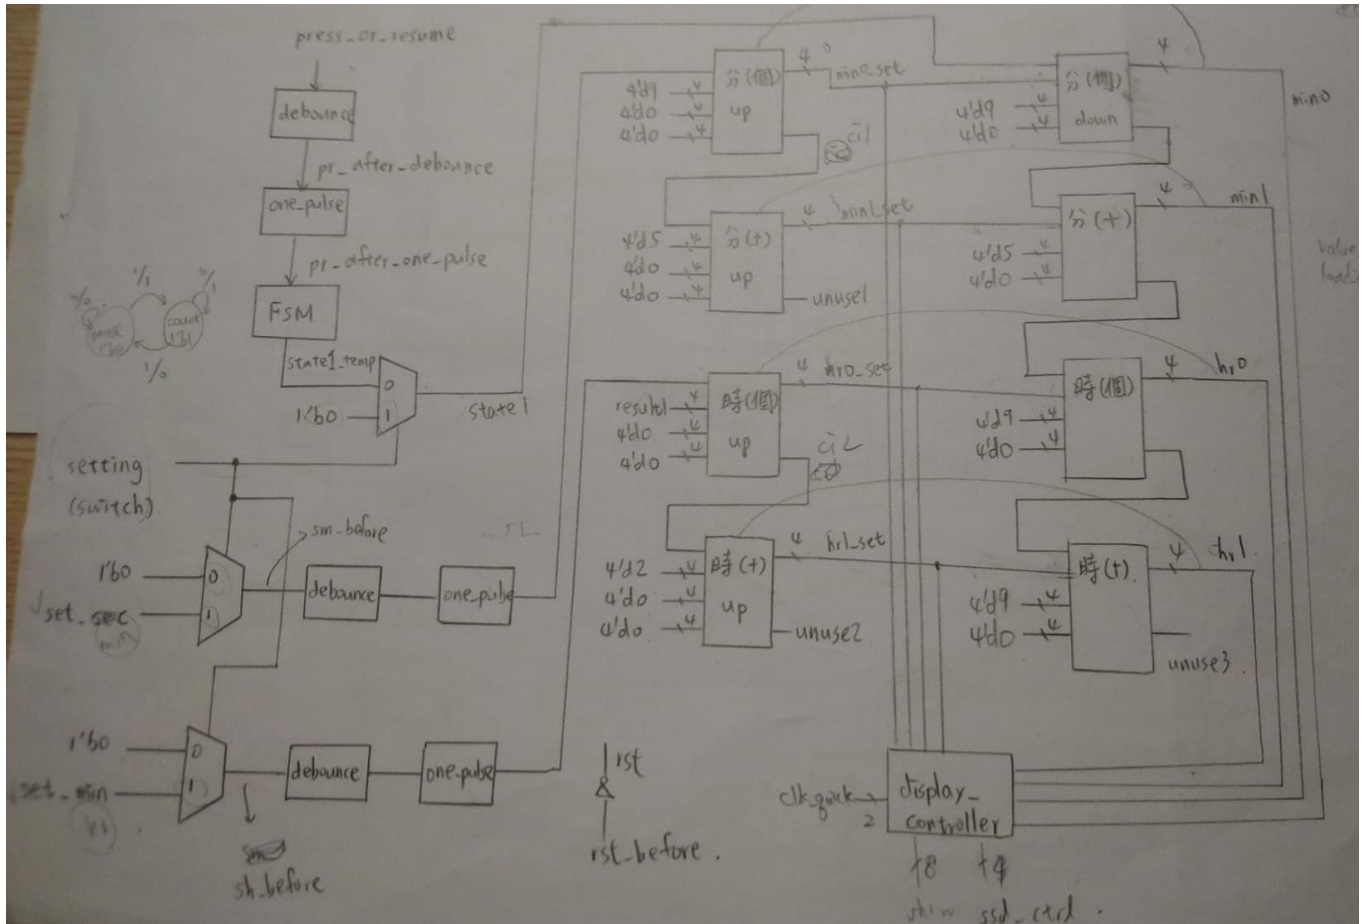 press_or_resume
debounce
pr_after_debounce
one_pulse
pr_after_one_pulse
FSM
1/1
1/0
state1_temp
0
1'b0
1
state1
setting
(switch)
sm_before
1'b0
0
set_sec
1
min
debounce
one_pulse
1'b0
0
set_min
1
debounce
one_pulse
sh_before
rst
rst_before.
4'd9 4
4'd0 4
4'd0 4
分(個)
up
4
min0_set
ci1
4'd5 4
4'd0 4
4'd0 4
分(十)
up
4
min1_set
unuse1
result1 4
4'd0 4
4'd0 4
時(個)
up
4
hr0_set
ci2
4'd2 4
4'd0 4
4'd0 4
時(十)
up
4
hr1_set
unuse2
4'd9 4
4'd0 4
分(個)
down
4
min0
4'd5 4
4'd0 4
分(十)
4
min1
value
4'd9 4
4'd0 4
時(個)
4
hr0
4'd9 4
4'd0 4
時(十)
4
hr1
unuse3.
clk_quick
2
display_
controller
8
4
ssd_ctrl.